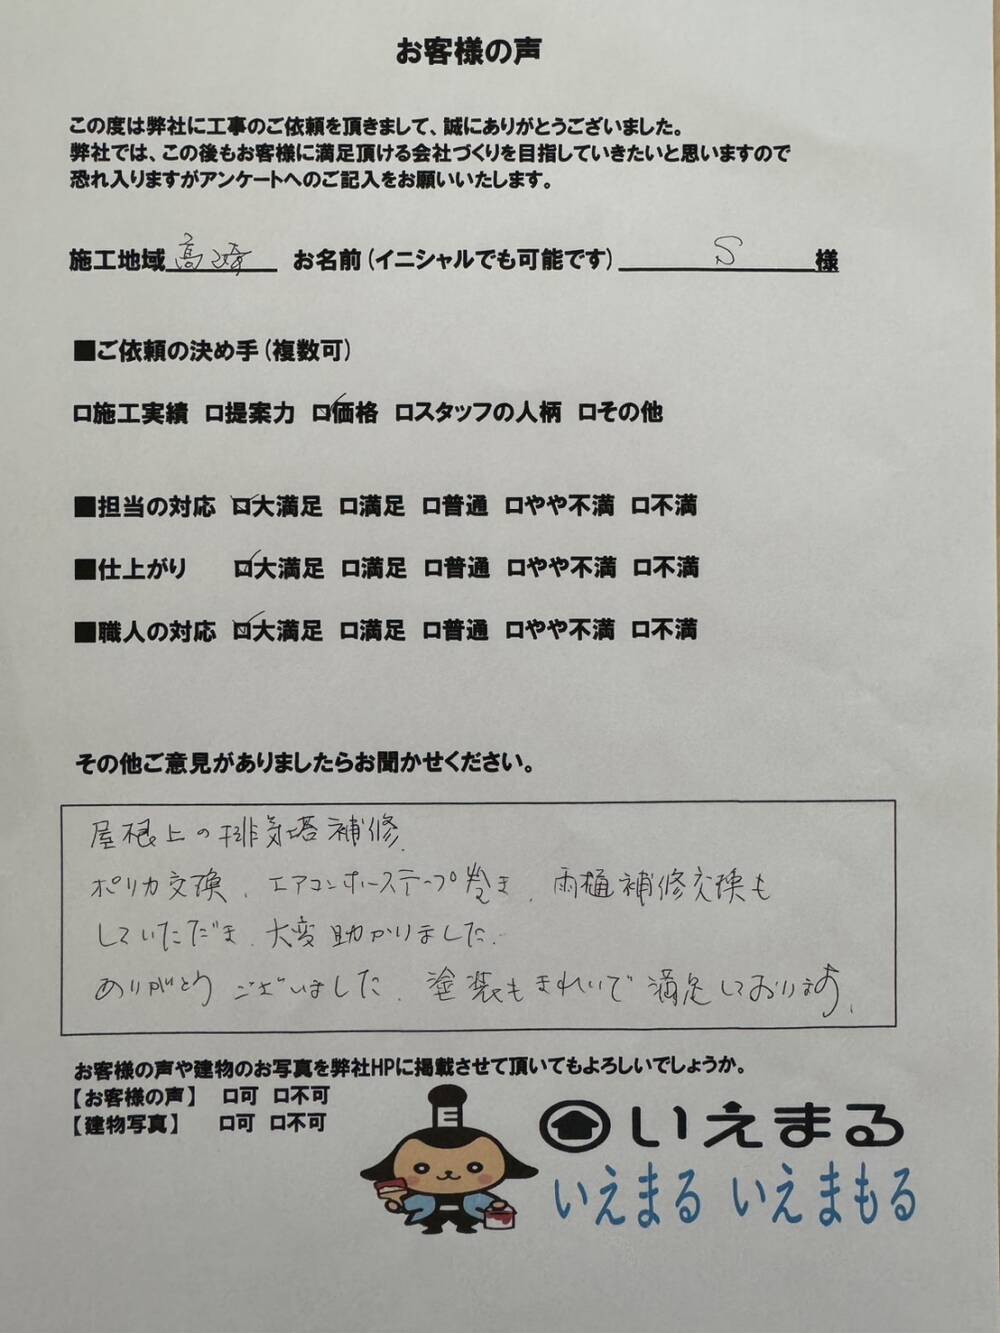 お客様の声
この度は弊社に工事のご依頼を頂きまして、誠にありがとうございました。
弊社では、この後もお客様に満足頂ける会社づくりを目指していきたいと思いますので
恐れ入りますがアンケートへのご記入をお願いいたします。
施工地域 高崎 お名前(イニシャルでも可能です) S 様
■ご依頼の決め手(複数可)
□施工実績 □提案力 ☑価格 □スタッフの人柄 □その他
■担当の対応 ☑大満足 □満足 □普通 □やや不満 □不満
■仕上がり ☑大満足 □満足 □普通 □やや不満 □不満
■職人の対応 ☑大満足 □満足 □普通 □やや不満 □不満
その他ご意見がありましたらお聞かせください。
屋根上の排気塔補修、
ポリカ交換、エアコンホーステープ巻き、雨樋補修交換も
していただき、大変助かりました。
ありがとうございました。塗装もきれいで満足しております。
お客様の声や建物のお写真を弊社HPに掲載させて頂いてもよろしいでしょうか。
【お客様の声】 □可 □不可
【建物写真】 □可 □不可
いえまる
いえまる いえまもる